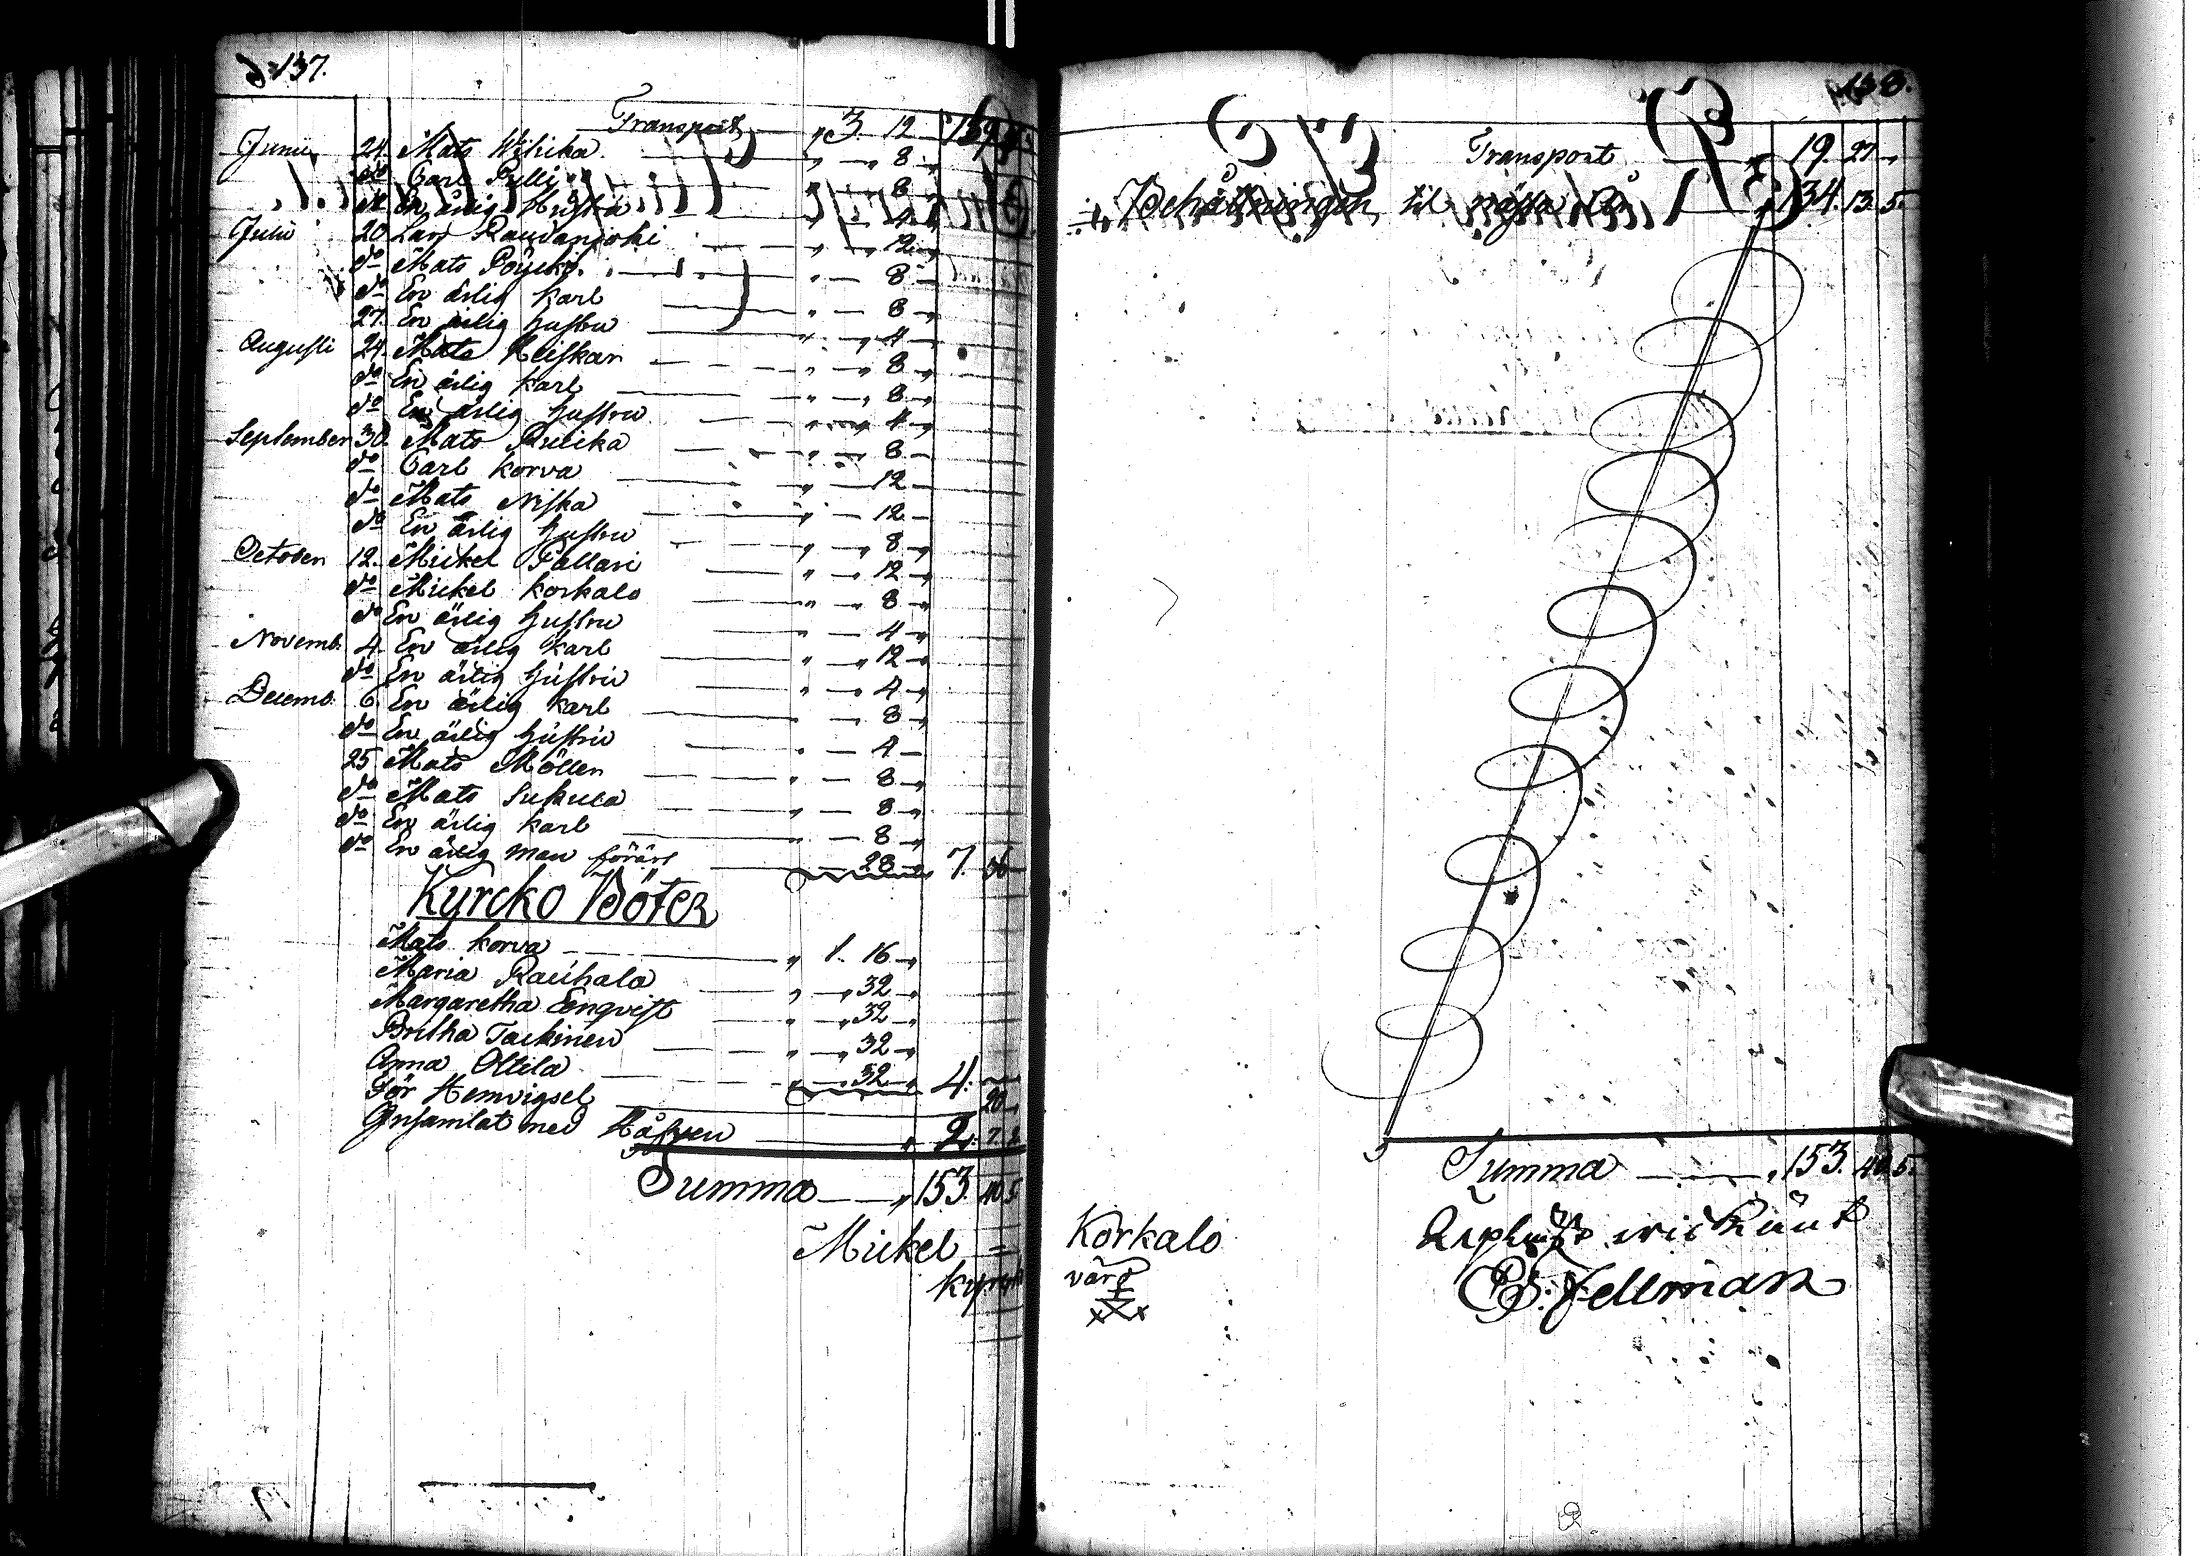 137.
Transport " 3. 12 139.
Junii 24. Mats Wihika " — 8 "
do Carl Pulli " — 8 "
do En ärlig Hustru " — 4 "
Julii 20. Lars Raudanjoki " — 12 "
do Mats Pöyckö " — 8 —
do En ärlig karl " — 8 "
27. En ärlig hustru " — 4 —
Augusti 24. Mats Heiskari " — 8 "
do En ärlig karl " — 8 "
do En ärlig hustru " — 4 —
September 30. Mats Rulika " — 8 —
do Carl Korva " — 12 —
do Mats Niska " — 12 —
do En ärlig hustru " — 8 "
October 12. Mickel Pallari " — 12 "
do Mickel Korkalo " — 8 "
do En ärlig hustru " — 4 "
Novemb. 4. En ärlig karl " — 12 "
do En ärlig hustru " — 4 "
Decemb. 6. En ärlig karl " — 8 "
do En ärlig hustru " — 4 —
25 Mats Möller " — 8 "
do Mats Sukula " — 8 "
do En ärlig karl " — 8 "
do En ärlig man förärt 28 7. 36
Kyrcko Böter
Mats Korva " 1. 16 "
Maria Rauhala " — 32 "
Margaretha Enqvist " — 32 "
Britha Tackinen " — 32 "
Anna Ollila " — 32 " 4. —
För Hemvigsel 20
Insamlat med Håfven " 2. 7
Summa " 153. 40 5.
Mickel =
kyrck
138.
Transport " 19. 27 "
Behållningen til nästa år " 134. 13. 5.
Summa " 153. 40. 5.
Korkalo
värd
E. Fellman